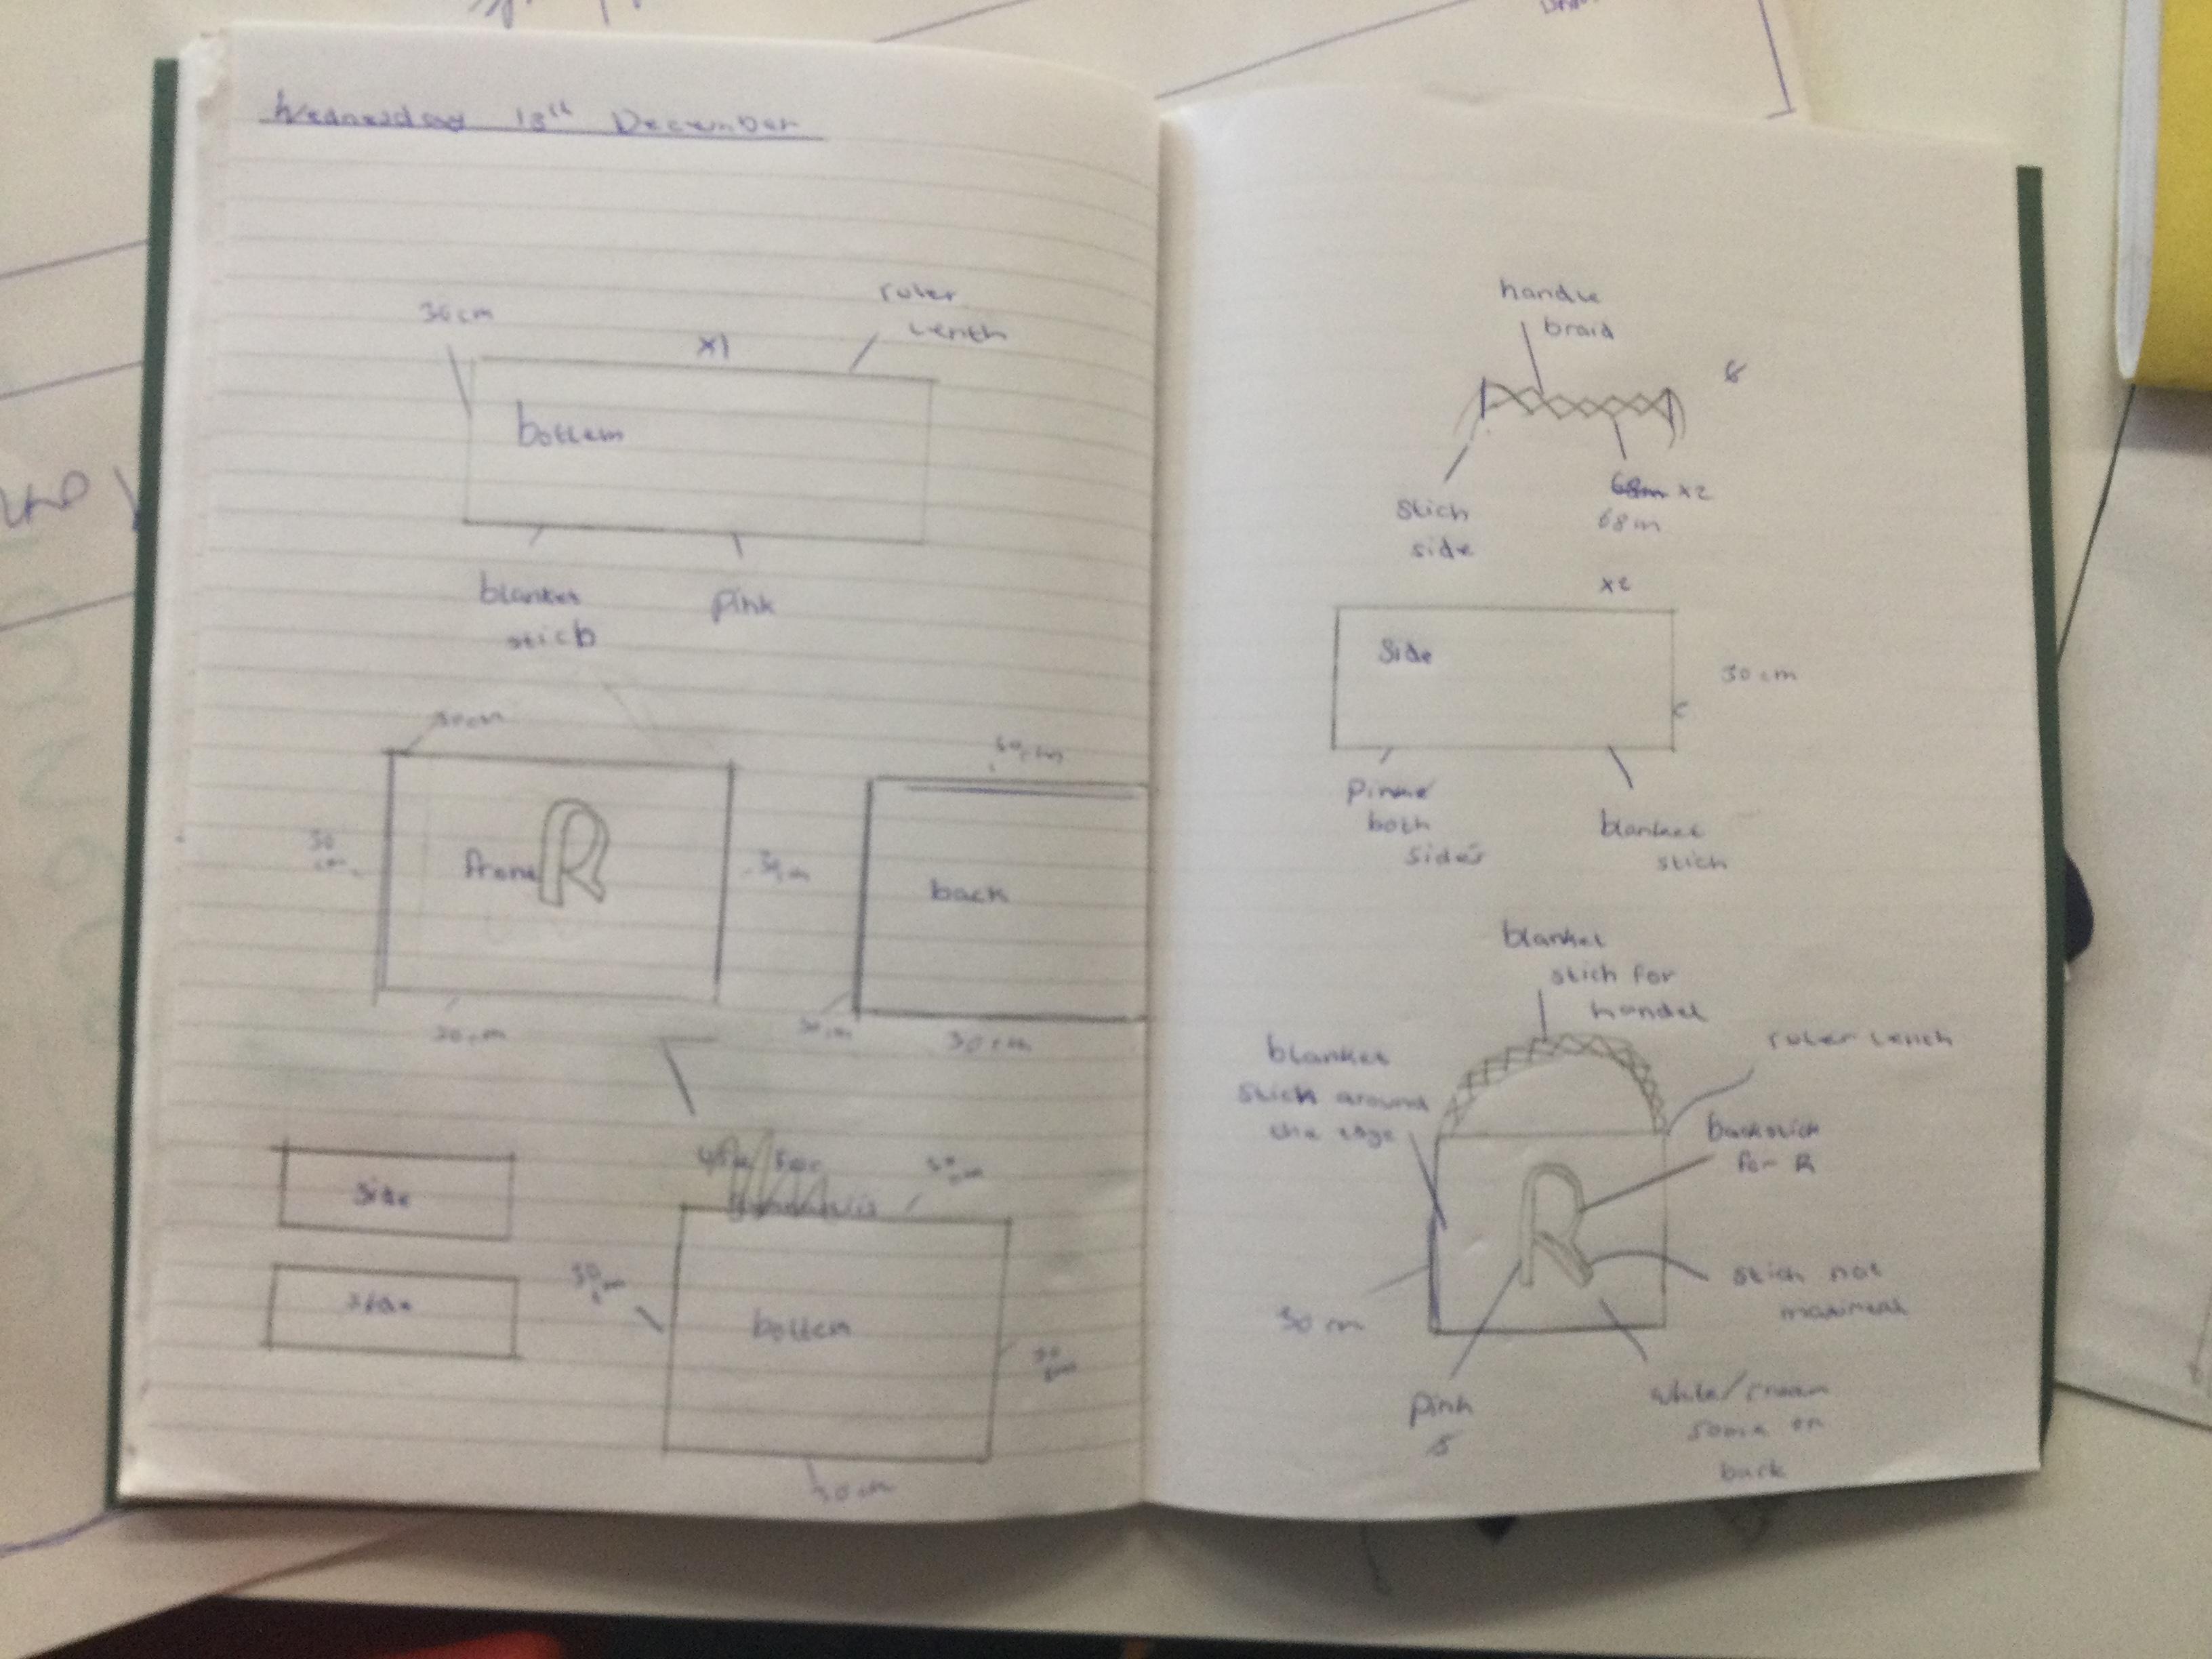 Wednesday 13th December
30cm
x1
ruler
lenth
bottem
blanket
stich
pink
30cm
30
cm
front R
30cm
30cm
30cm
back
30cm
30cm
side
side
30
cm
30
cm
bottem
30
cm
30cm
handle
braid
8
stich
side
68m x2
68m
x2
Side
30cm
Pink
both
sides
blanket
stich
blanket
stich for
handel
blanket
stich around
the edge
ruler lenth
backstich
for R
R
stich not
maximeal
30cm
Pink
5
white/cream
same on
back